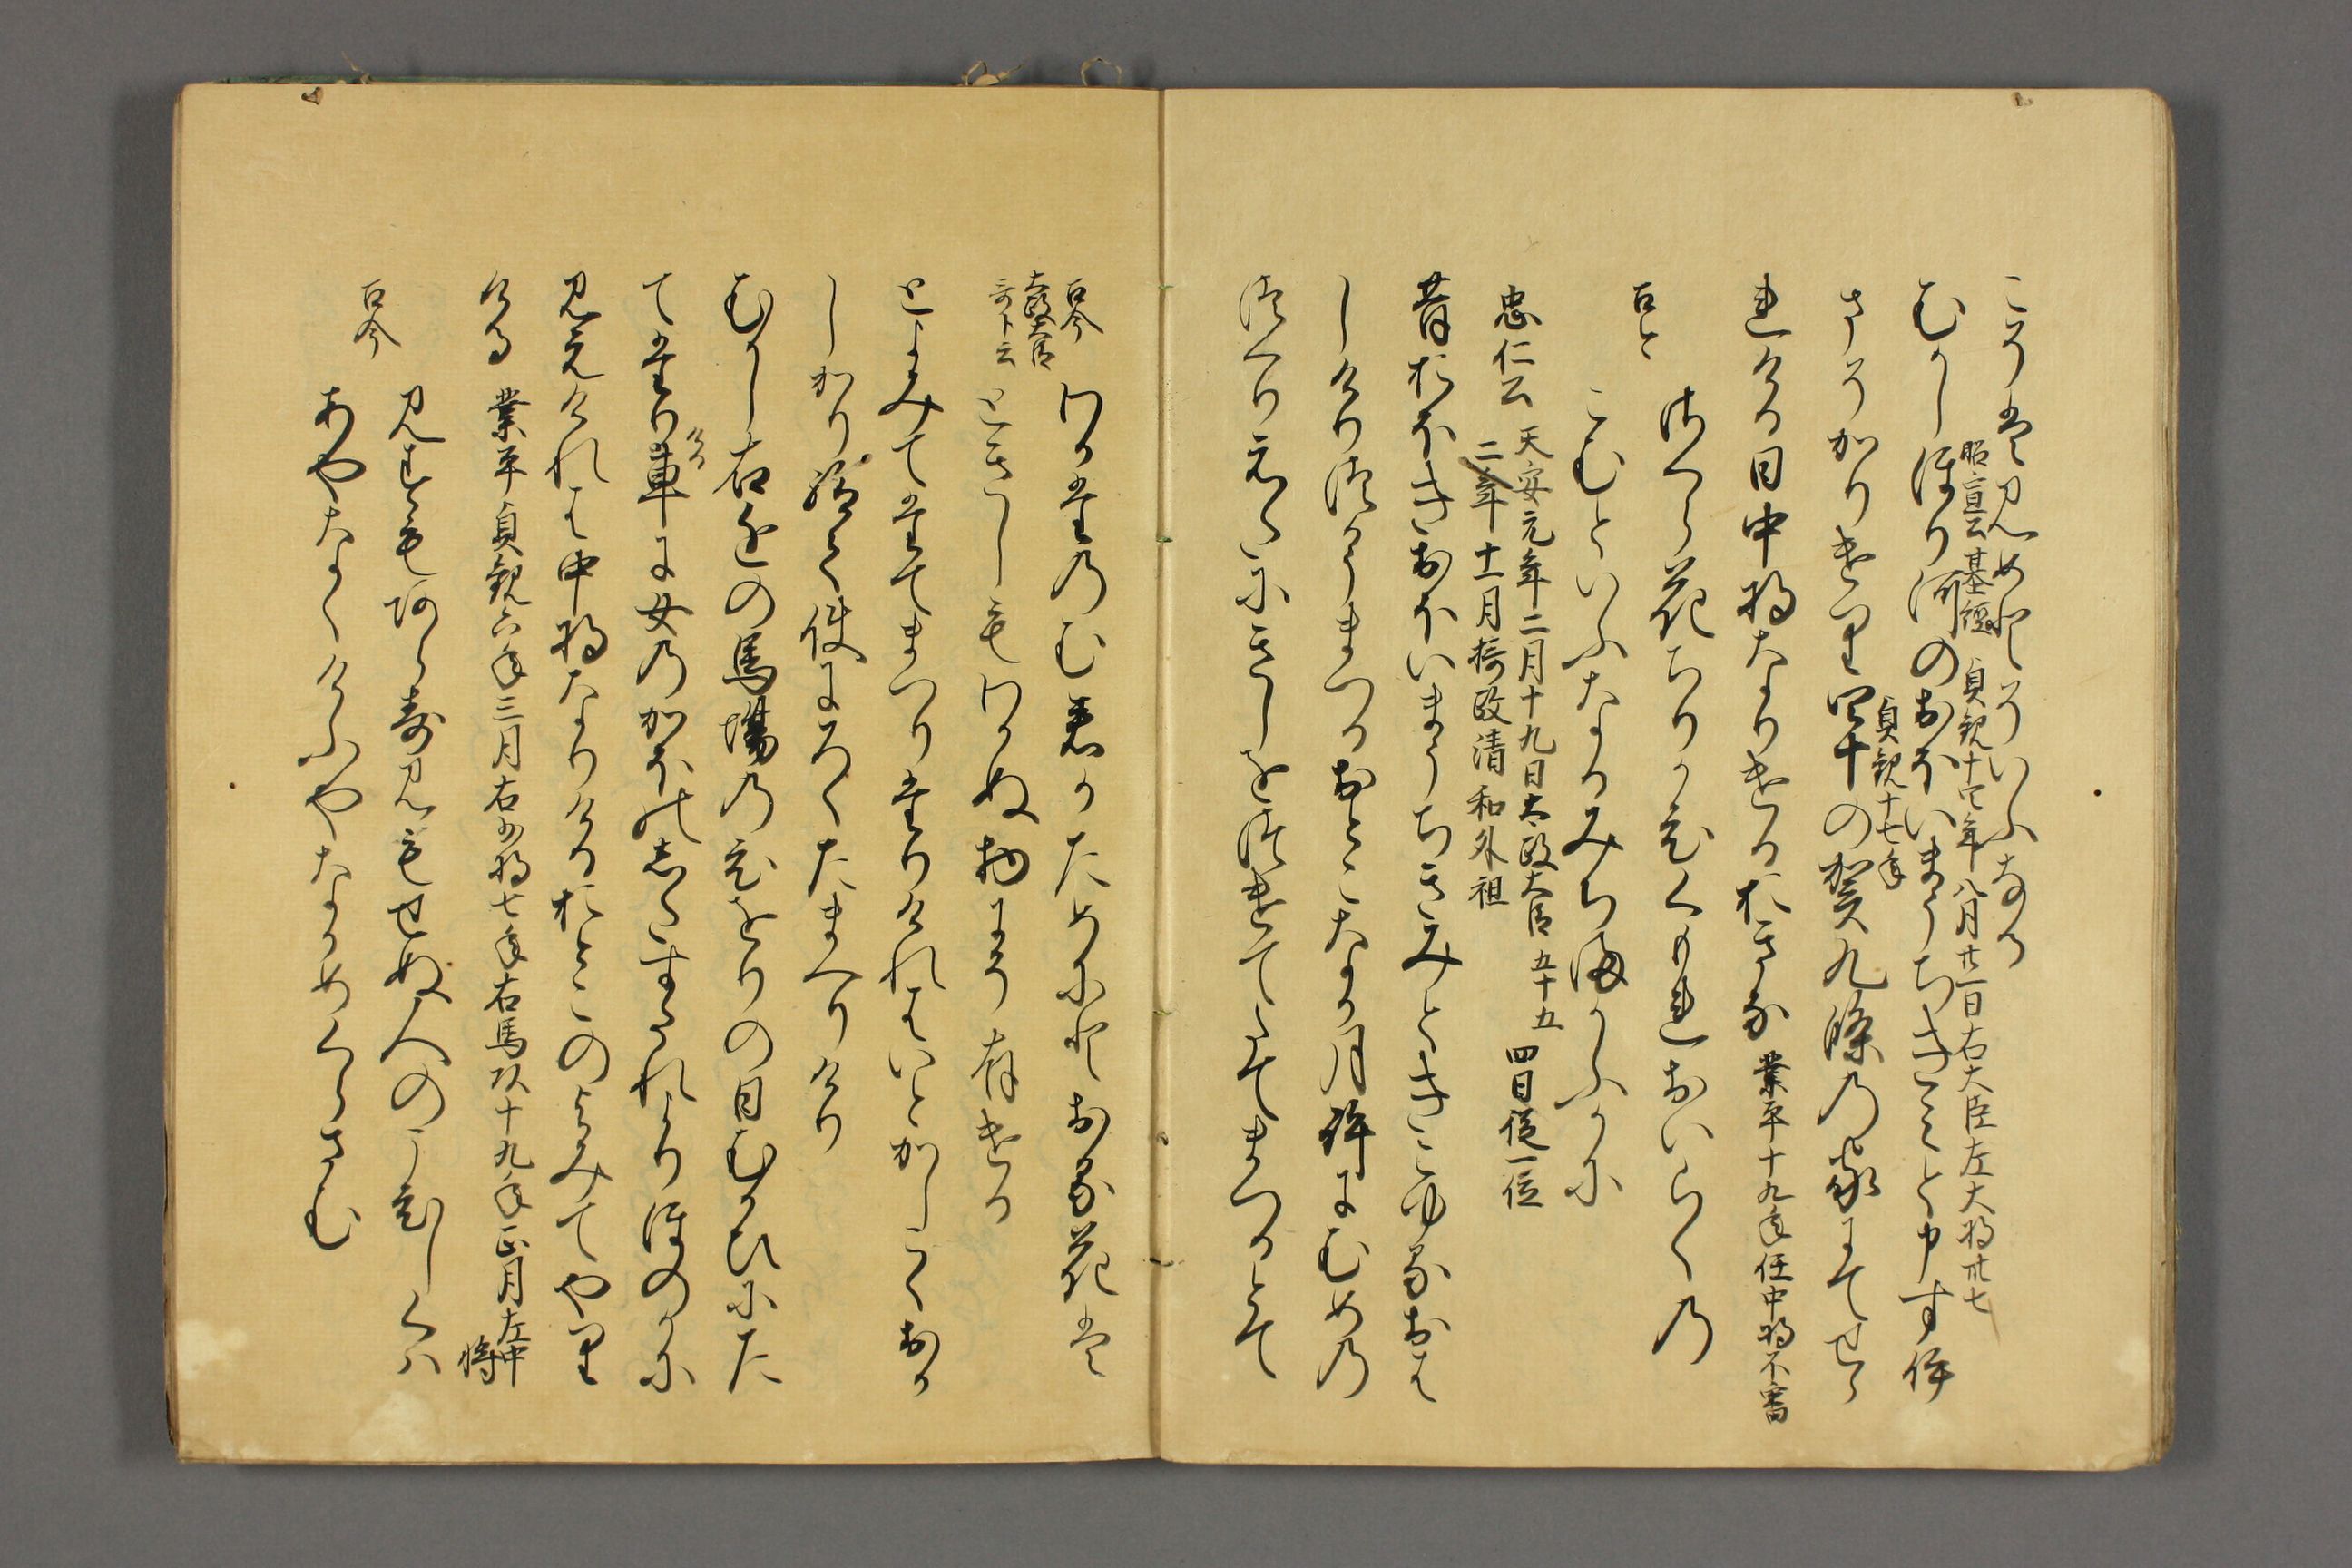 こそは見めとそいふなる
昭宣公基経 貞観十四年八月廿一日右大臣左大将卅七
むかしほり河のおほいまうちきみと申すいま
貞観十七年
そかりけり四十の賀九條の家にてせら
れける日中将なりけるおきな 業平十九年任中将不審
古今
さくら花ちりかひくもれおいらくの
こむといふなるみちまかふかに
忠仁公 天安元年二月十九日太政大臣 五十五 四日従一位
二年十一月摂政清和外祖
昔おほきおほいまうちきみときこゆるおは
しけりつかうまつるおとこなか月許にむめの
つくりえたにきしをつけてたてまつるとて
古今
太政大臣
哥ト云
わかたのむ君かためにとおる花は
ときしもわかぬ物にそ有ける
とよみてたてまつりたりけれはいとかしこくおか
しかり給て使にろくたまへりけり
むかし右近の馬場のひをりの日むかひにた
てたりける車に女のかほのしたすたれよりほのかに
見えけれは中将なりけるおとこのよみてやり
ける 業平貞観六年三月右少将七年右馬頭十九年正月左中将
古今
見すもあらす見もせぬ人のこひしくは
あやなくけふやなかめくらさむ